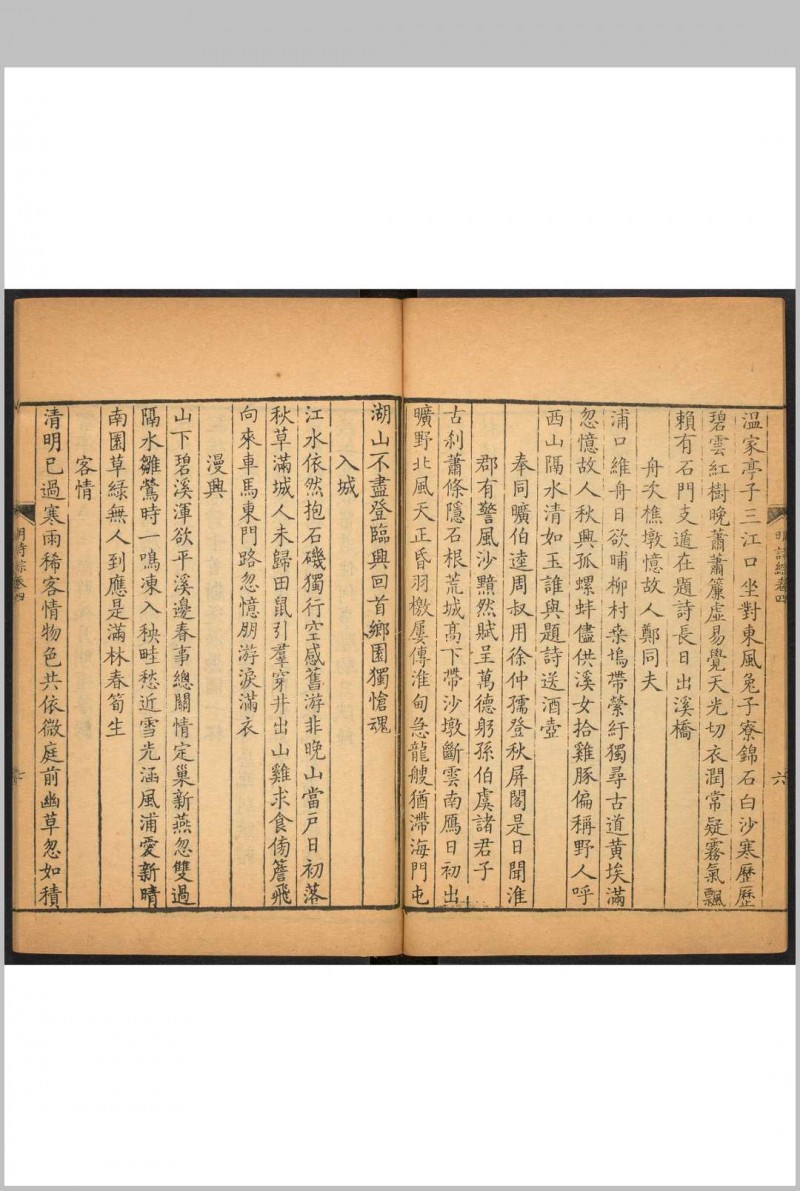 溫家亭子三江口坐對東風兔子寮錦石白沙寒歷歷
碧雲紅樹晚蕭蕭簾虛易覺天光切衣潤常疑霧氣飄
賴有石門支遁在題詩長日出溪橋
舟次樵墩憶故人鄭同夫
浦口維舟日欲晡柳村桑塢帶縈紆獨尋古道黃埃滿
忽憶故人秋興孤螺蚌儘供溪女拾雞豚偏稱野人呼
西山隔水清如玉誰與題詩送酒壺
奉同曠伯逵周叔用徐仲孺登秋屏閣是日聞淮
郡有警風沙黯然賦呈萬德躬孫伯虞諸君子
古刹蕭條隱石根荒城高下帶沙墩斷雲南鴈日初出
曠野北風天正昏羽檄屢傳淮甸急龍艘猶滯海門屯
明詩綜卷四
六
湖山不盡登臨興回首鄉園獨愴魂
入城
江水依然抱石磯獨行空感舊游非晚山當戸日初落
秋草滿城人未歸田鼠引羣穿井出山雞求食傍簷飛
向來車馬東門路忽憶朋游淚滿衣
漫興
山下碧溪渾欲平溪邊春事總關情定巢新燕忽雙過
隔水雛鶯時一鳴凍入秧畦愁近雪光涵風浦愛新晴
南園草綠無人到應是滿林春筍生
客情
清明已過寒雨稀客情物色共依微庭前幽草忽如積
明詩綜卷四
七